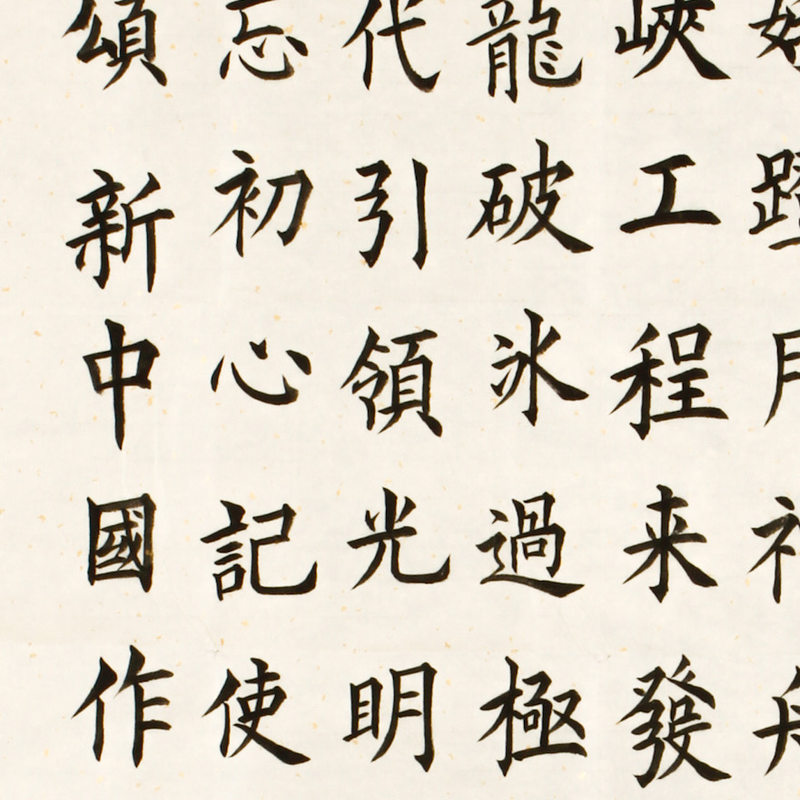 峽工程来發
龍破冰過極
代引領光明
忘初心記使
頌新中國作